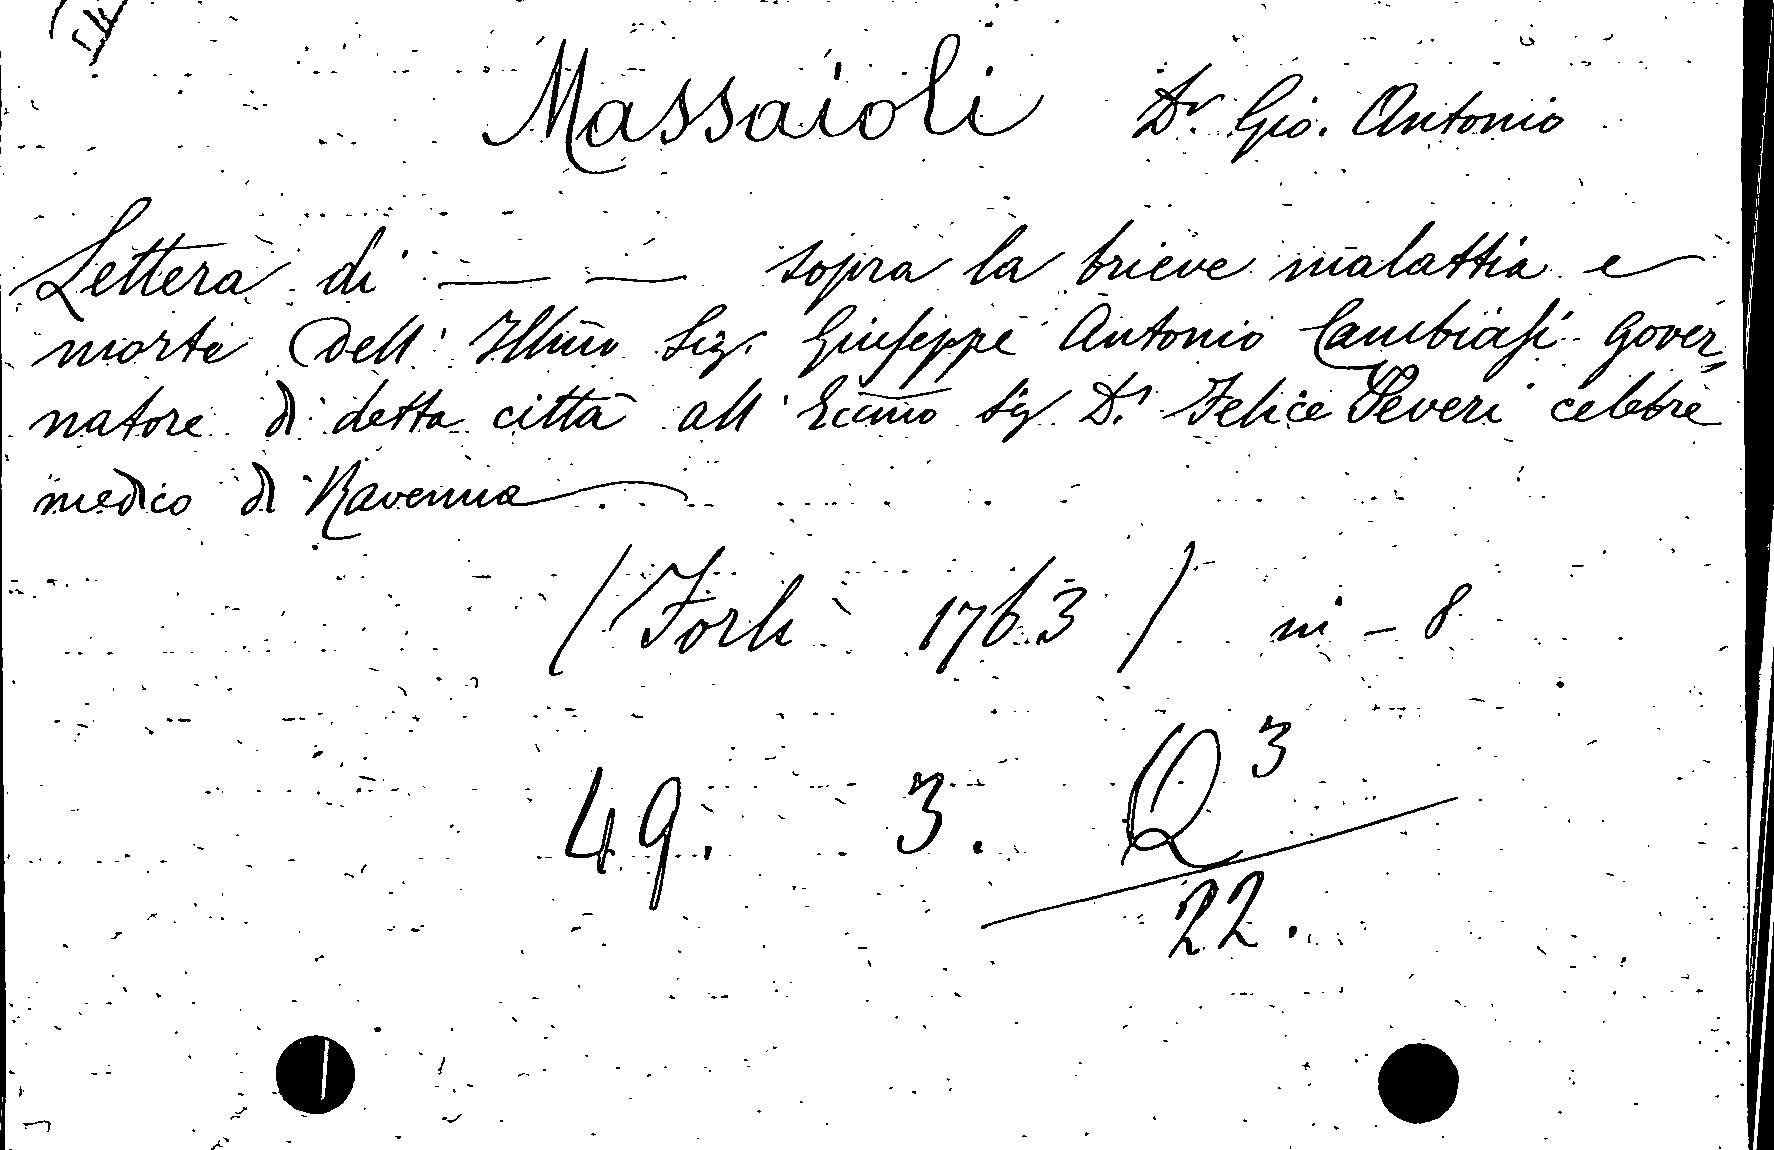 Massaioli Dr. Gio. Antonio
Lettera di — — sopra la brieve malattia e
morte dell' Illmo Sig. Giuseppe Antonio Cambiasi Gover,,
natore di detta città all' Eccmo Sig Dr. Felice Severi celebre
medico di Ravenna
(Forlì 1763) in - 8
49. 3. Q3
22.